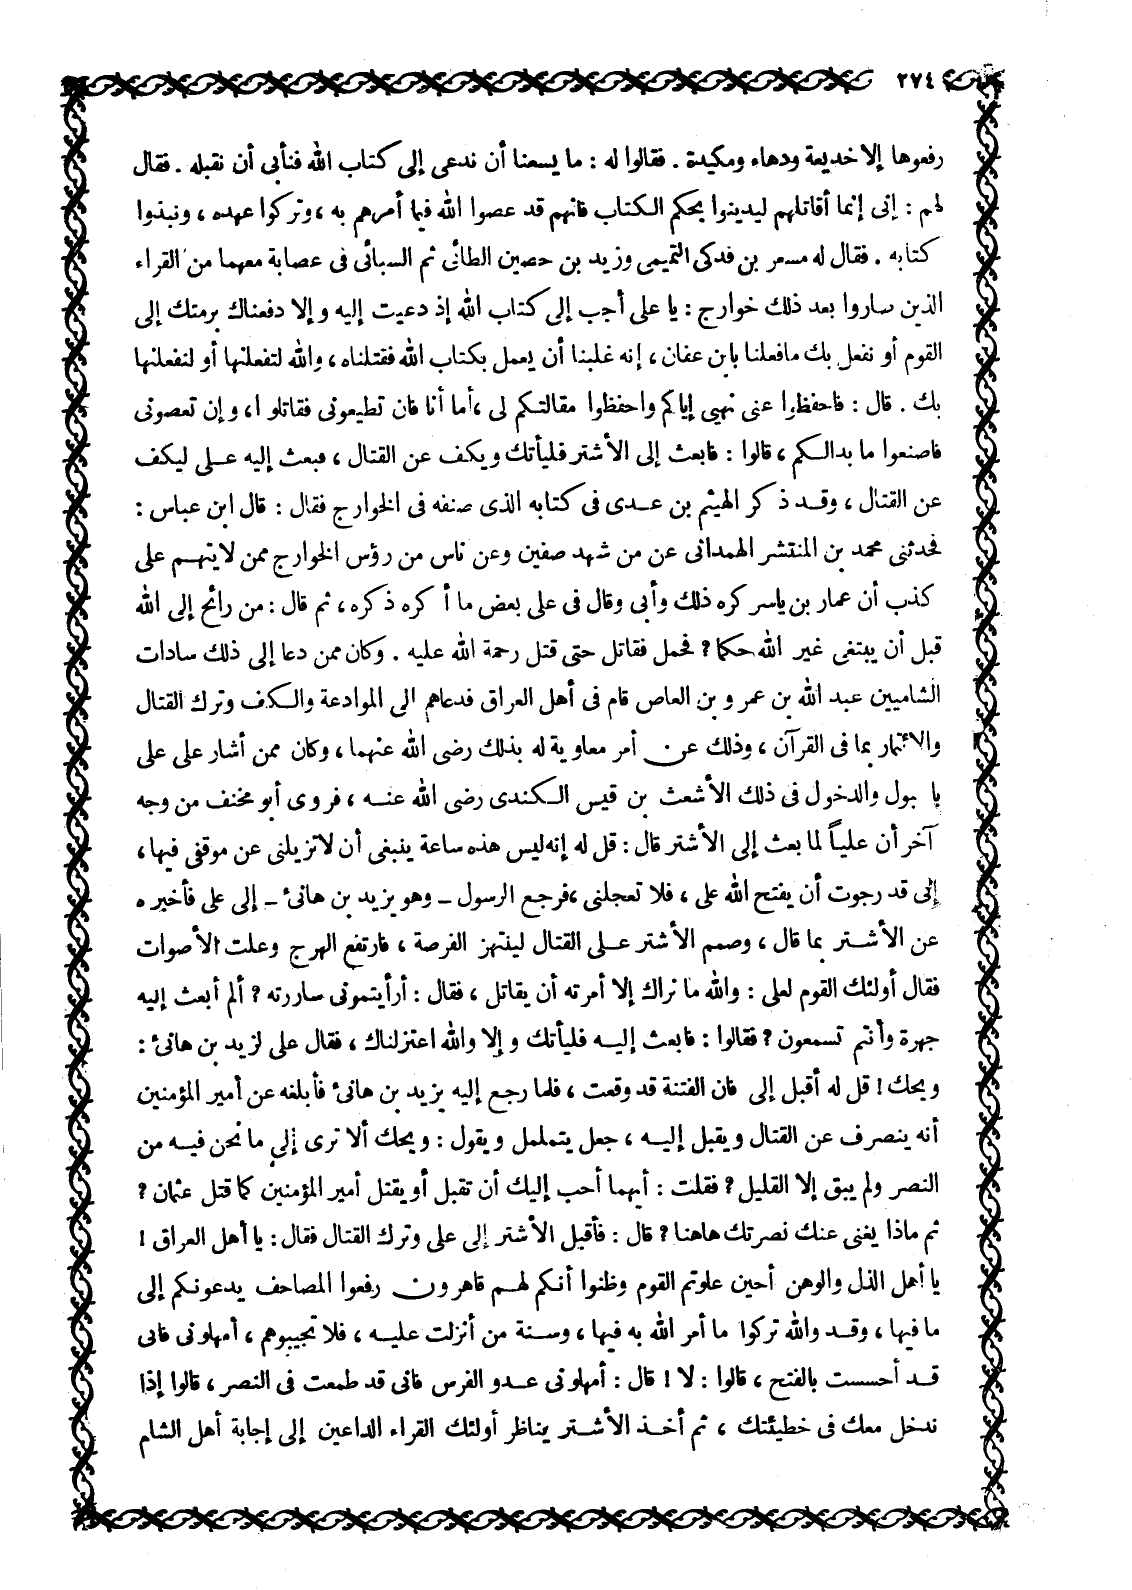 ٢٧٤
رفعوها إلا خديعة ودهاء ومكيدة . فقالوا له : ما يسعنا أن ندعى إلى كتاب الله فنأبى أن نقبله . فقال
لهم : إنى إنما أقاتلهم ليدينوا بحكم الكتاب فانهم قد عصوا الله فيما أمرهم به ، وتركوا عهده ، ونبذوا
كتابه . فقال له مسعر بن فدكى التميمى وزيد بن حصين الطائى ثم السبائى فى عصابة معهما من القراء
الذين ساروا بعد ذلك خوارج : يا على أجب إلى كتاب الله إذ دعيت إليه وإلا دفعناك برمتك إلى
القوم أو نفعل بك مافعلنا بابن عفان ، إنه غلبنا أن يعمل بكتاب الله فقتلناه ، والله لتفعلنها أو لنفعلنها
بك . قال : فاحفظوا عنى نهيى إياكم واحفظوا مقالتكم لى ، أما أنا فان تطيعونى فقاتلوا ، وإن تعصونى
فاصنعوا ما بدالكم ، قالوا : فابعث إلى الأشتر فليأتك ويكف عن القتال ، فبعث إليه على ليكف
عن القتال ، وقد ذكر الهيثم بن عدى فى كتابه الذى صنفه فى الخوارج فقال : قال ابن عباس :
فحدثنى محمد بن المنتشر الهمدانى عن من شهد صفين وعن ناس من رؤس الخوارج ممن لايتهم على
كذب أن عمار بن ياسر كره ذلك وأبى وقال فى على بعض ما أكره ذكره ، ثم قال : من رائح إلى الله
قبل أن يبتغى غير الله حكما ؟ فحمل فقاتل حتى قتل رحمة الله عليه . وكان ممن دعا إلى ذلك سادات
الشاميين عبد الله بن عمرو بن العاص قام فى أهل العراق فدعاهم الى الموادعة والكف وترك القتال
والائتمار بما فى القرآن ، وذلك عن أمر معاوية له بذلك رضى الله عنهما ، وكان ممن أشار على على
با بول والدخول فى ذلك الأشعث بن قيس الكندى رضى الله عنه ، فروى أبو مخنف من وجه
آخر أن علياً لما بعث إلى الأشتر قال : قل له إنه ليس هذه ساعة ينبغى أن لاتزيلنى عن موقفى فيها ،
إنى قد رجوت أن يفتح الله على ، فلا تعجلنى ، فرجع الرسول ـ وهو يزيد بن هانئ ـ إلى على فأخبره
عن الأشتر بما قال ، وصمم الأشتر على القتال لينتهز الفرصة ، فارتفع الهرج وعلت الأصوات
فقال أولئك القوم لعلى : والله ما نراك إلا أمرته أن يقاتل ، فقال : أرأيتمونى ساررته ؟ ألم أبعث إليه
جهرة وأنتم تسمعون ؟ فقالوا : فابعث إليه فليأتك وإلا والله اعتزلناك ، فقال على لزيد بن هانئ :
ويحك ! قل له أقبل إلى فان الفتنة قد وقعت ، فلما رجع إليه يزيد بن هانئ فأبلغه عن أمير المؤمنين
أنه ينصرف عن القتال ويقبل إليه ، جعل يتململ ويقول : ويحك ألا ترى إلى ما نحن فيه من
النصر ولم يبق إلا القليل ؟ فقلت : أيهما أحب إليك أن تقبل أو يقتل أمير المؤمنين كما قتل عثمان ؟
ثم ماذا يغنى عنك نصرتك هاهنا ؟ قال : فأقبل الأشتر إلى على وترك القتال فقال : يا أهل العراق !
يا أهل الذل والوهن أحين علوتم القوم وظنوا أنكم لهم قاهرون رفعوا المصاحف يدعونكم إلى
ما فيها ، وقد والله تركوا ما أمر الله به فيها ، وسنة من أنزلت عليه ، فلا تجيبوهم ، أمهلونى فانى
قد أحسست بالفتح ، قالوا : لا ! قال : أمهلونى عدو الفرس فانى قد طمعت فى النصر ، قالوا إذا
ندخل معك فى خطيئتك ، ثم أخذ الأشتر يناظر أولئك القراء الداعين إلى إجابة أهل الشام